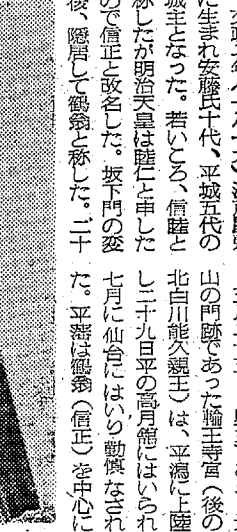 に生まれ安藤氏十代、平城五代の
城主となった。若いころ、信睦と
称したが明治天皇は睦仁と申した
ので信正と改名した。坂下門の変
後、隠居して鶴翁と称した。二十
山の門跡であった輪王寺宮（後の
北白川能久親王）は、平潟に上陸
し二十九日平の高月館にはいられ
七月に仙台にはいり勤慎なされ
た。平藩は鶴翁（信正）を中心に